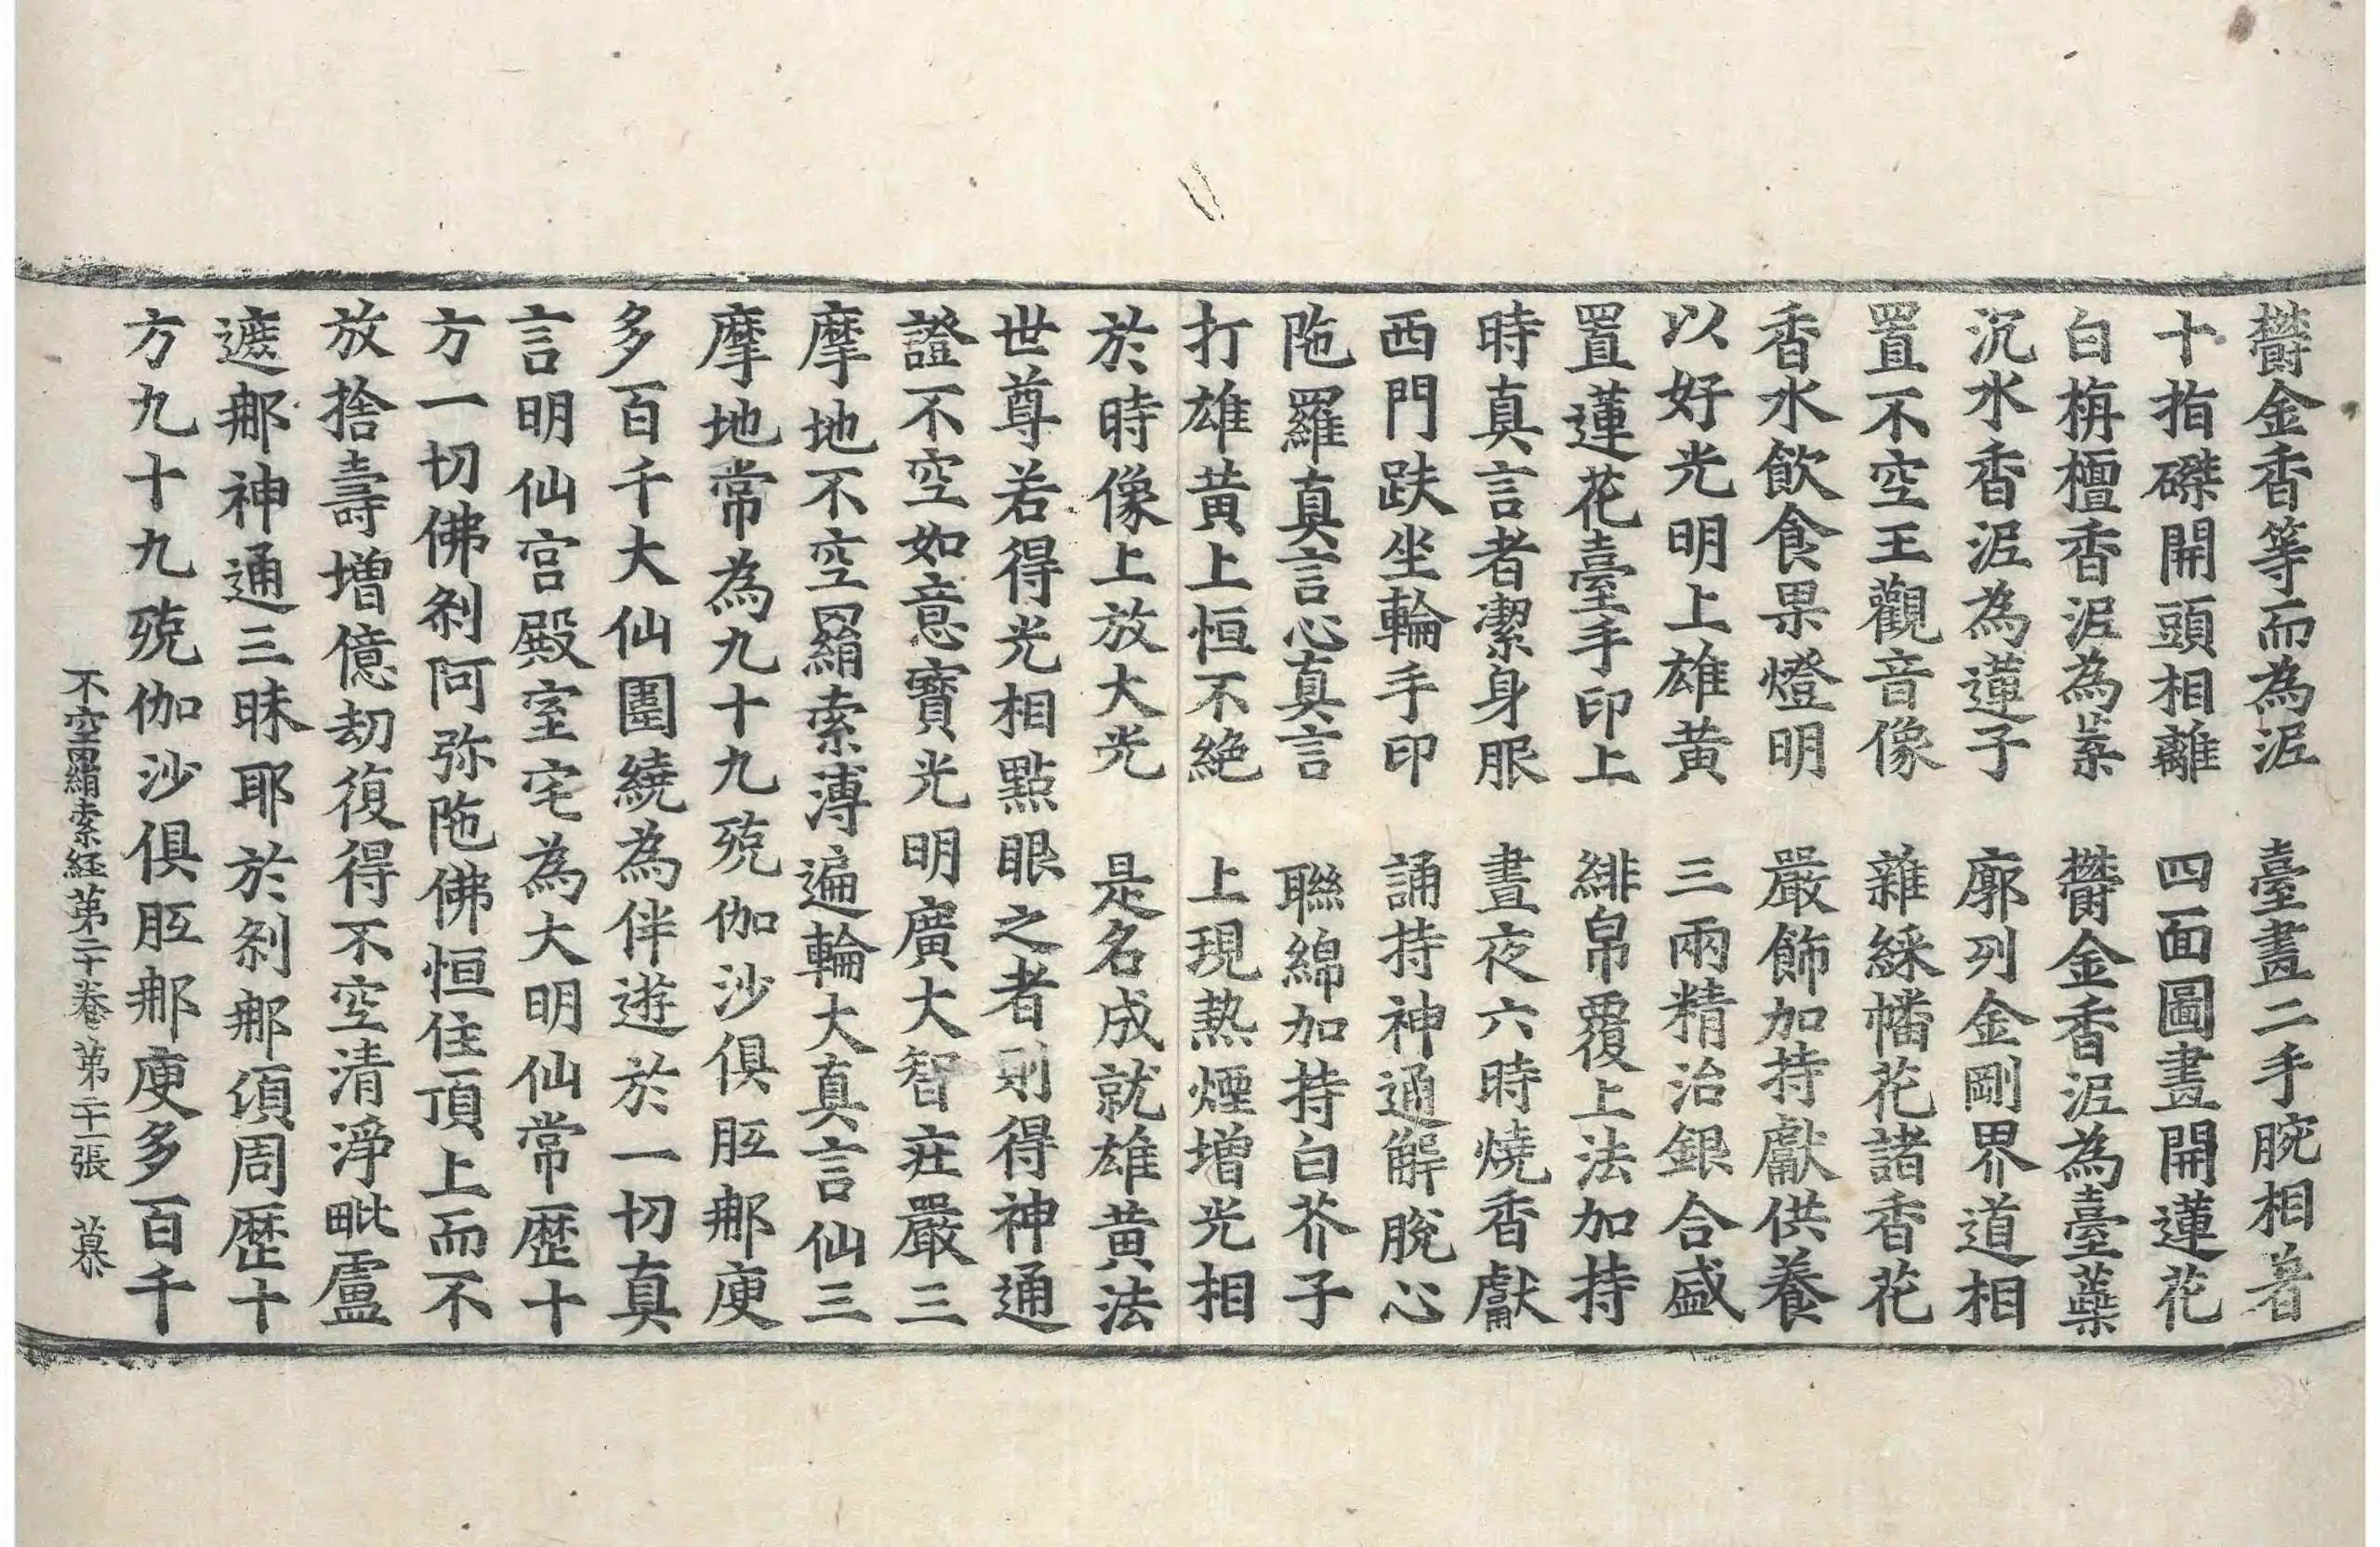 欝金香等而為泥　臺畫二手腕相著
十指磔開頭相離　四面圖畫開蓮花
白栴檀香泥為蘂　欝金香泥為臺蘂
沉水香泥為蓮子　廓列金剛界道相
置不空王觀音像　雜綵幡花諸香花
香水飲食果燈明　嚴飾加持獻供養
以好光明上雄黃　三兩精治銀合盛
置蓮花臺手印上　緋帛覆上法加持
時真言者潔身服　晝夜六時燒香獻
西門趺坐輪手印　誦持神通解脫心
陁羅真言心真言　聮綿加持白芥子
打雄黃上恒不絕　上現熱煙增光相
於時像上放大光　是名成就雄黃法
世尊若得光相點眼之者則得神通
證不空如意寶光明廣大智莊嚴三
摩地不空羂索溥遍輪大真言仙三
摩地常為九十九殑伽沙俱胝那庾
多百千大仙圍繞為伴遊於一切真
言明仙宮殿室宅為大明仙常歷十
方一切佛剎阿弥陁佛恒住頂上而不
放捨壽增億劫復得不空清淨毗盧
遮那神通三昧耶於剎那頃周歷十
方九十九殑伽沙俱胝那庾多百千
不空羂索経苐二十卷　苐二十一張　慕